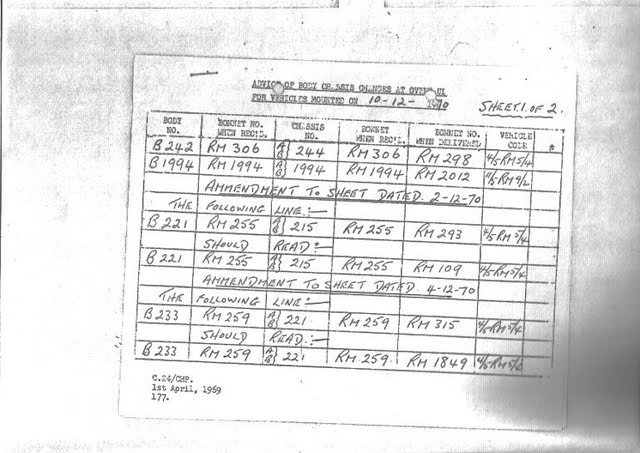 ADVICE OF BODY CHASSIS CHANGES AT OVERHAUL
FOR VEHICLES MOUNTED ON 10-12-1970 SHEET.1 OF 2.
BODY NO. BONNET NO. WHEN REC'D. CHASSIS NO. BONNET WHEN REC'D. BONNET NO. WHEN DELIVERED VEHICLE CODE *
B242 RM 306 A/B 244 RM 306 RM 298 4/5 RM 5/4
B1994 RM 1994 A/B 1994 RM 1994 RM 2012
AMMENDMENT TO SHEET DATED. 2-12-70
THE FOLLOWING LINE:-
B221 RM 255 A/B 215 RM 255 RM 293 4/5 RM 5/4
SHOULD READ:-
B221 RM 255 A/B 215 RM 255 RM 109 4/5 RM 5/4
AMMENDMENT TO SHEET DATED. 4-12-70
THE FOLLOWING LINE:-
B233 RM 259 A/B 221 RM 259 RM 315
SHOULD READ:-
B233 RM 259 A/B 221 RM 259 RM 1849
C.24/CHP.
1st April, 1969
177.